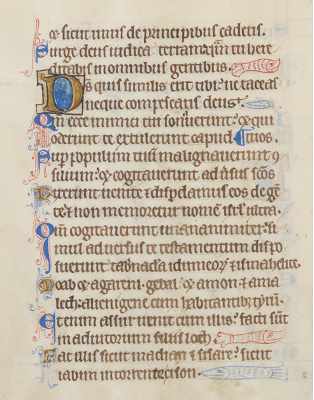 ⁊ sicut unus de principibus cadetis.
Surge deus iudica terram: qm̄ tu here
ditabis in omnibus gentibus.
Ds̄ quis similis erit tibi: ne taceas
neque compescaris deus.
Qm̄ ecce inimici tui sonuerunt: ⁊ qui
oderunt te extulerunt caput.
Sup populum tuū malignauerunt 9
silium: ⁊ cogitauerunt adūsus scōs tuos.
Dixerunt uenite ⁊ disp̄damus eos de gē
te: ⁊ non memoretur nomen isrl̄ ultra.
Qm̄ cogitauerunt unanimiter: si
mul aduersus te testamentum dispo
suerunt tab̄nacla idumeorꝝ ⁊ ismahelite.
Moab ⁊ agareni. gebal ⁊ amon ⁊ ama
lech: alienigene cum habitantib; tyrū.
Etenim assur uenit cum illis: facti sūt
in adiutorium filiis loth.
Fac illis sicut madian ⁊ sisare: sicut
iabin in torrente cison.